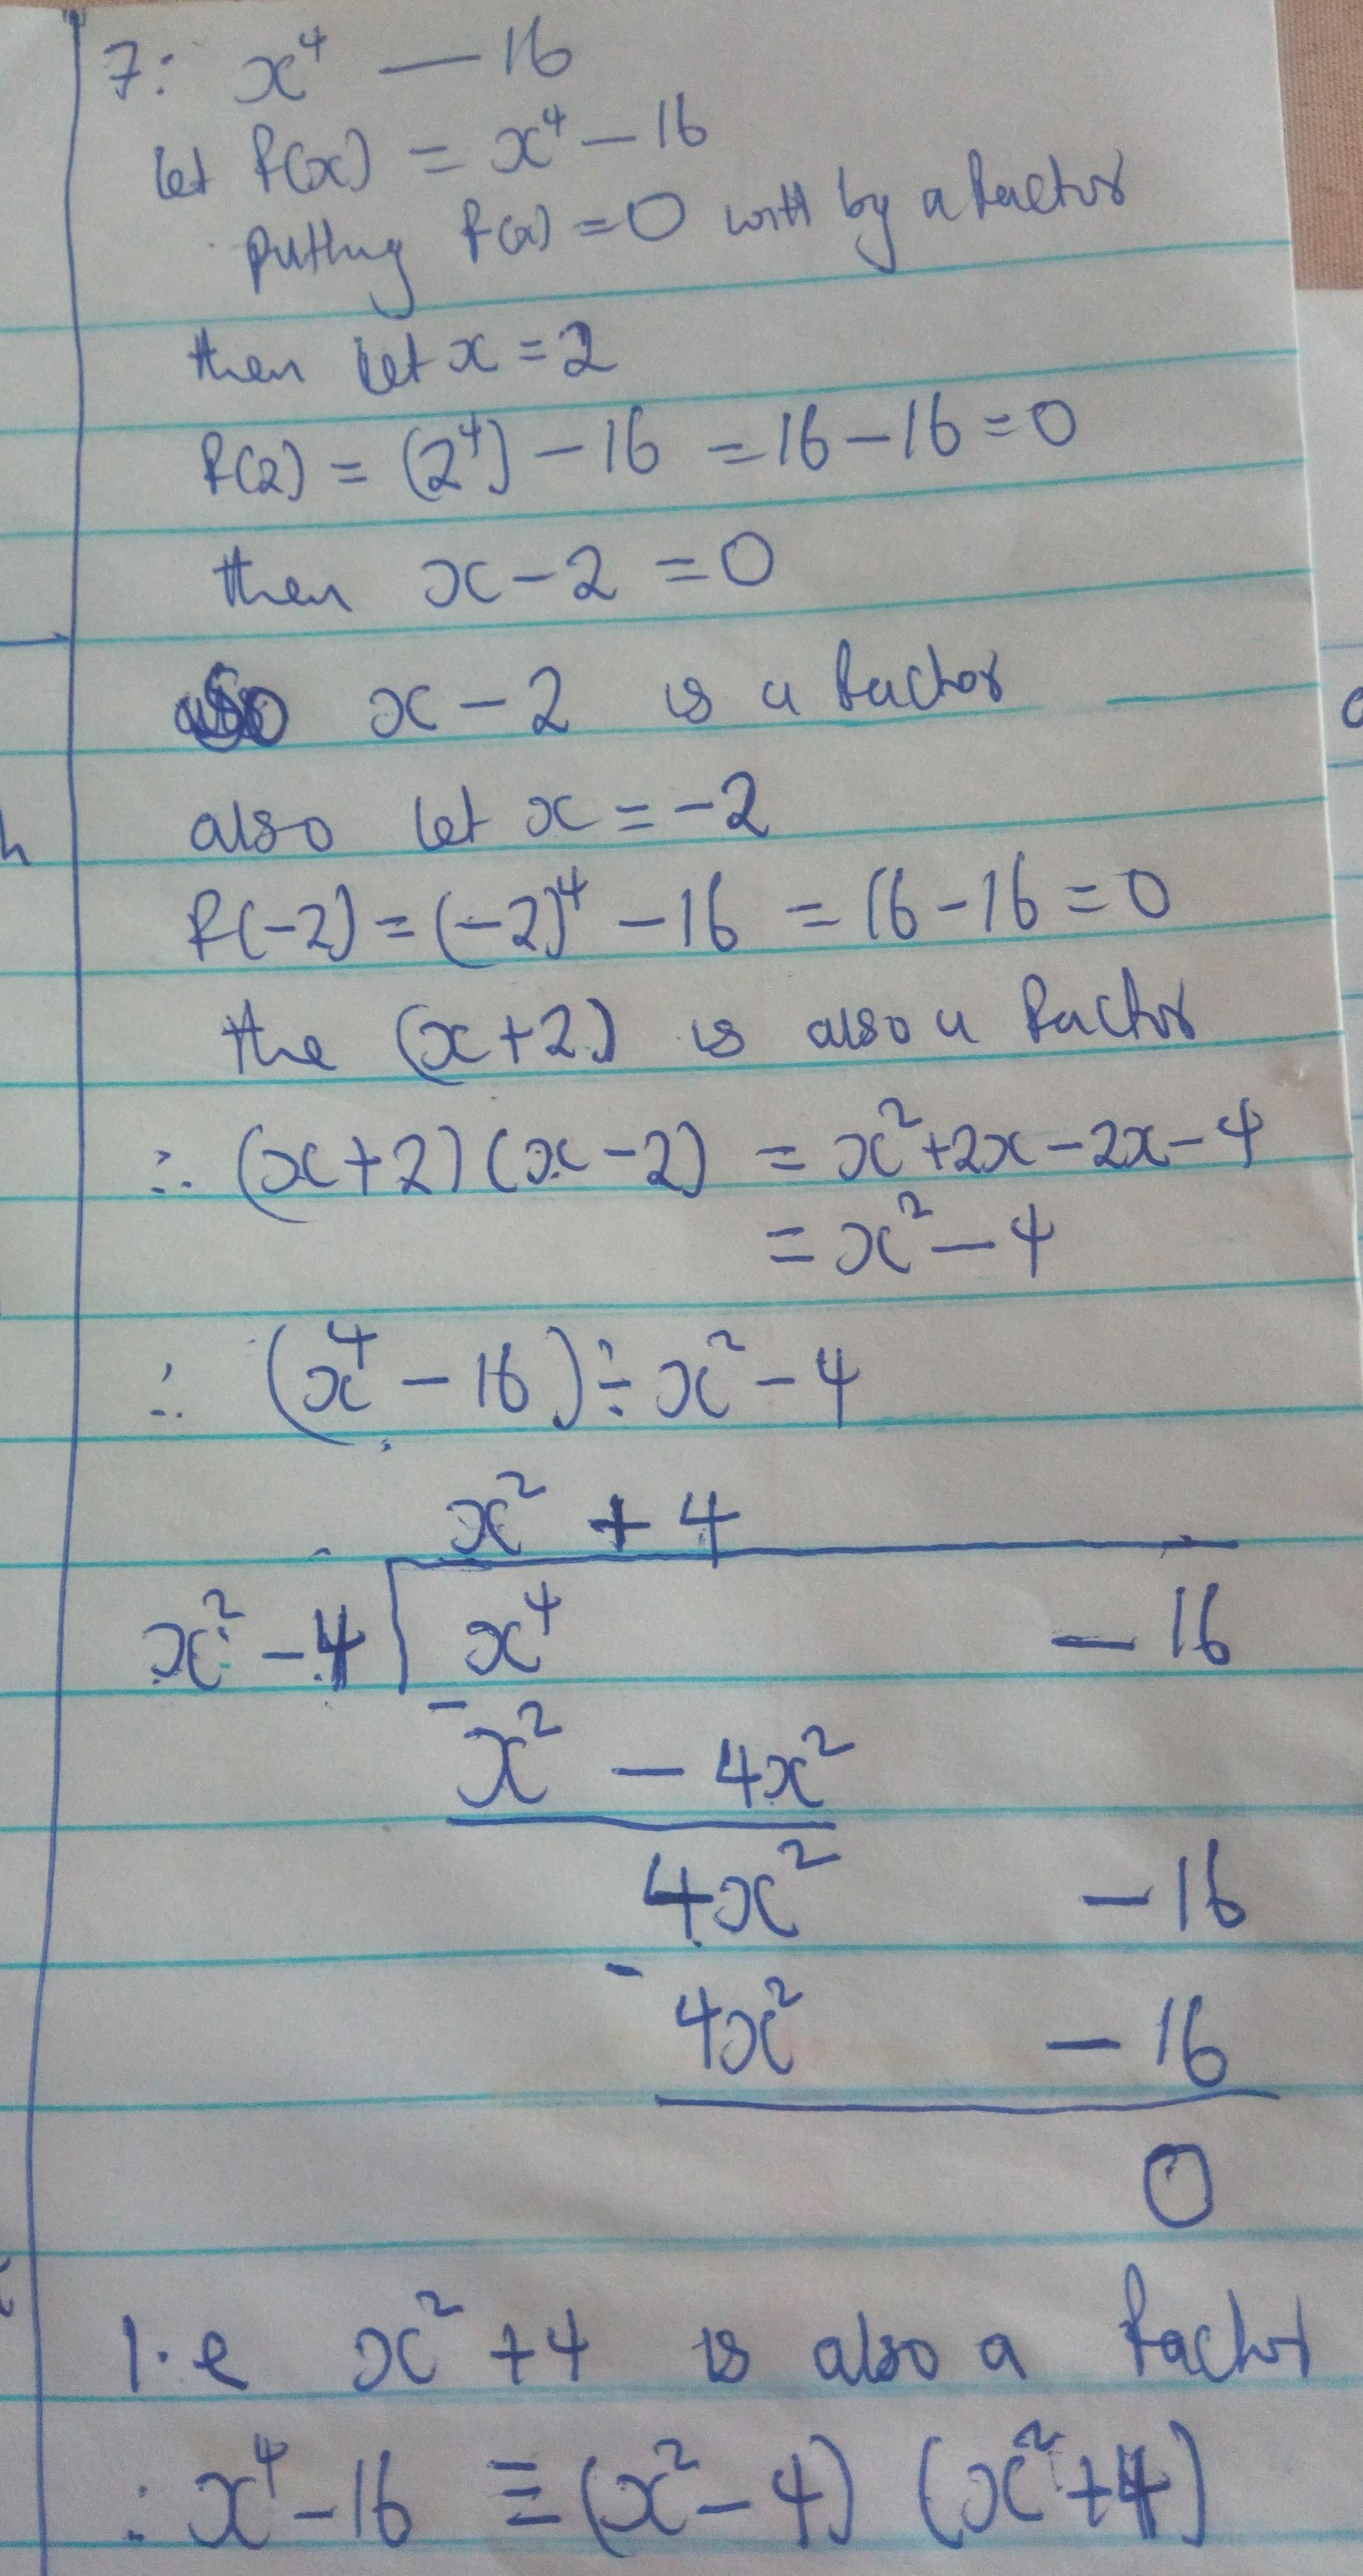 7: x⁴ — 16
let f(x) = x⁴ – 16
putting f(x) = 0 will by a factor
then let x = 2
f(2) = (2⁴) – 16 = 16 – 16 = 0
then x – 2 = 0
So x – 2 is a factor
also let x = –2
f(–2) = (–2)⁴ – 16 = 16 – 16 = 0
the (x+2) is also a factor
∴ (x+2)(x–2) = x²+2x–2x–4
= x² – 4
∴ (x⁴ – 16) ÷ x² – 4
x² + 4
x² – 4 x⁴ – 16
– x² – 4x²
4x² – 16
– 4x² – 16
0
I.e x² + 4 is also a factor
∴ x⁴ – 16 ≡ (x² – 4) (x² + 4)